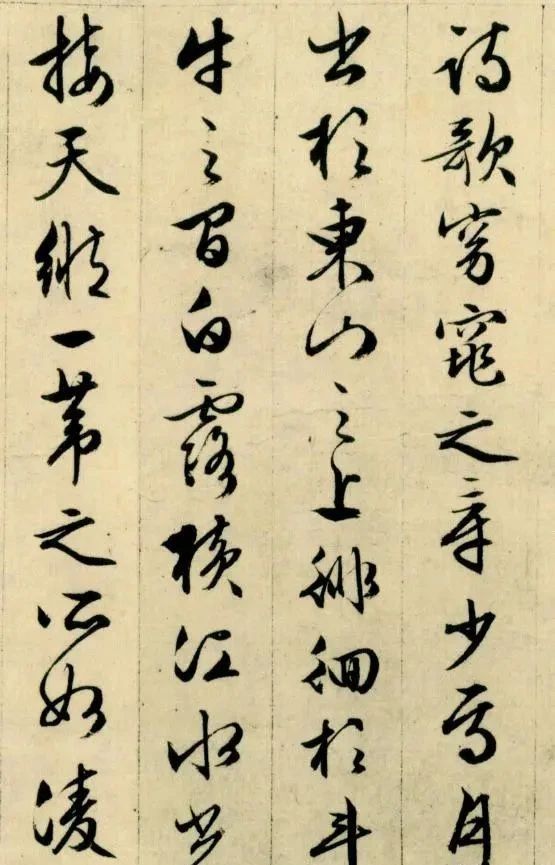 詩歌窈窕之章少焉月
出於東山之上徘徊於斗
牛之間白露橫江水光
接天縱一葦之所如淩